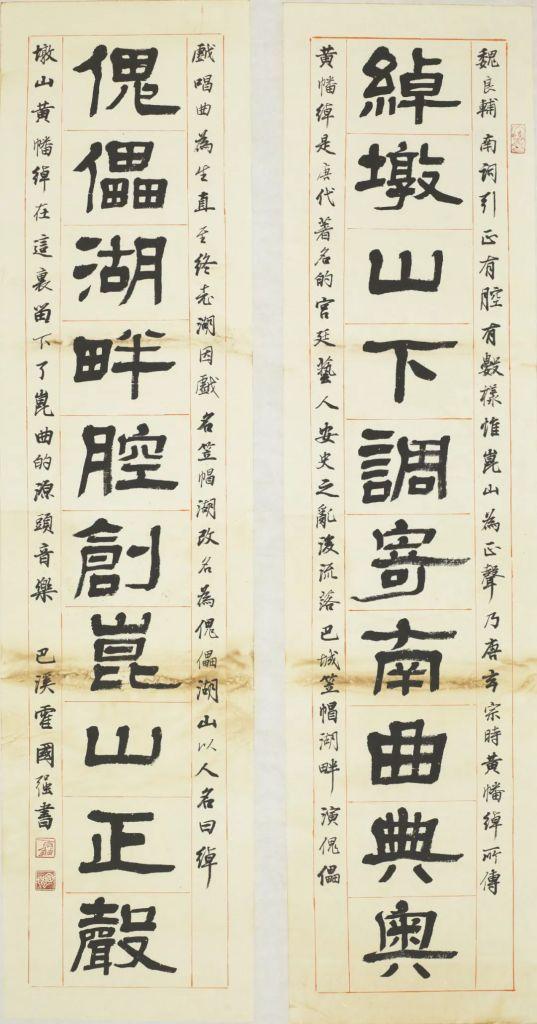 魏良輔南詞引正有腔有數樣惟崑山為正聲乃唐玄宗時黃幡綽所傳
綽墩山下調寄南曲典奧
黃幡綽是唐代著名的宮廷藝人安史之亂後流落巴城笠帽湖畔演傀儡
戲唱曲為生直至終老湖因戲名笠帽湖改名為傀儡湖山以人名曰綽
傀儡湖畔腔創崑山正聲
墩山黃幡綽在這裏留下了崑曲的源頭音樂 巴溪霍國強書